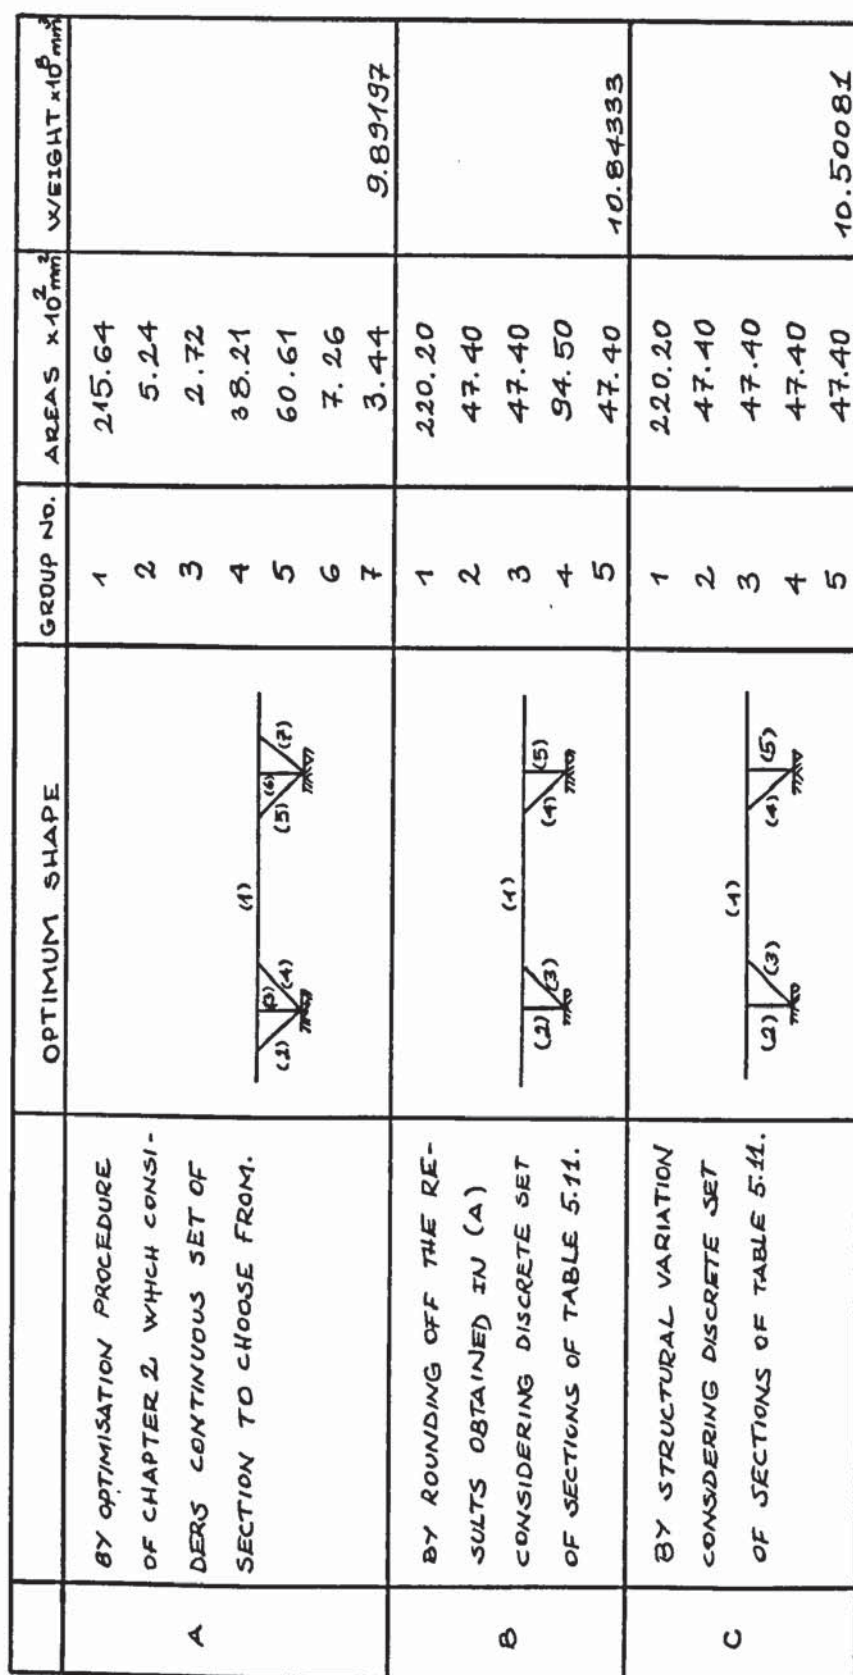 OPTIMUM SHAPE GROUP No. AREAS x10² mm² WEIGHT x10⁸ mm³
A
BY OPTIMISATION PROCEDURE
OF CHAPTER 2 WHICH CONSI-
DERS CONTINUOUS SET OF
SECTION TO CHOOSE FROM.
(1)
(2) (3) (4) (5) (6) (7)
1 215.64
2 5.24
3 2.72
4 38.21
5 60.61
6 7.26
7 3.44 9.89197
B
BY ROUNDING OFF THE RE-
SULTS OBTAINED IN (A)
CONSIDERING DISCRETE SET
OF SECTIONS OF TABLE 5.11.
(1)
(2) (3) (4) (5)
1 220.20
2 47.40
3 47.40
4 94.50
5 47.40 10.84333
C
BY STRUCTURAL VARIATION
CONSIDERING DISCRETE SET
OF SECTIONS OF TABLE 5.11.
(1)
(2) (3) (4) (5)
1 220.20
2 47.40
3 47.40
4 47.40
5 47.40 10.50081